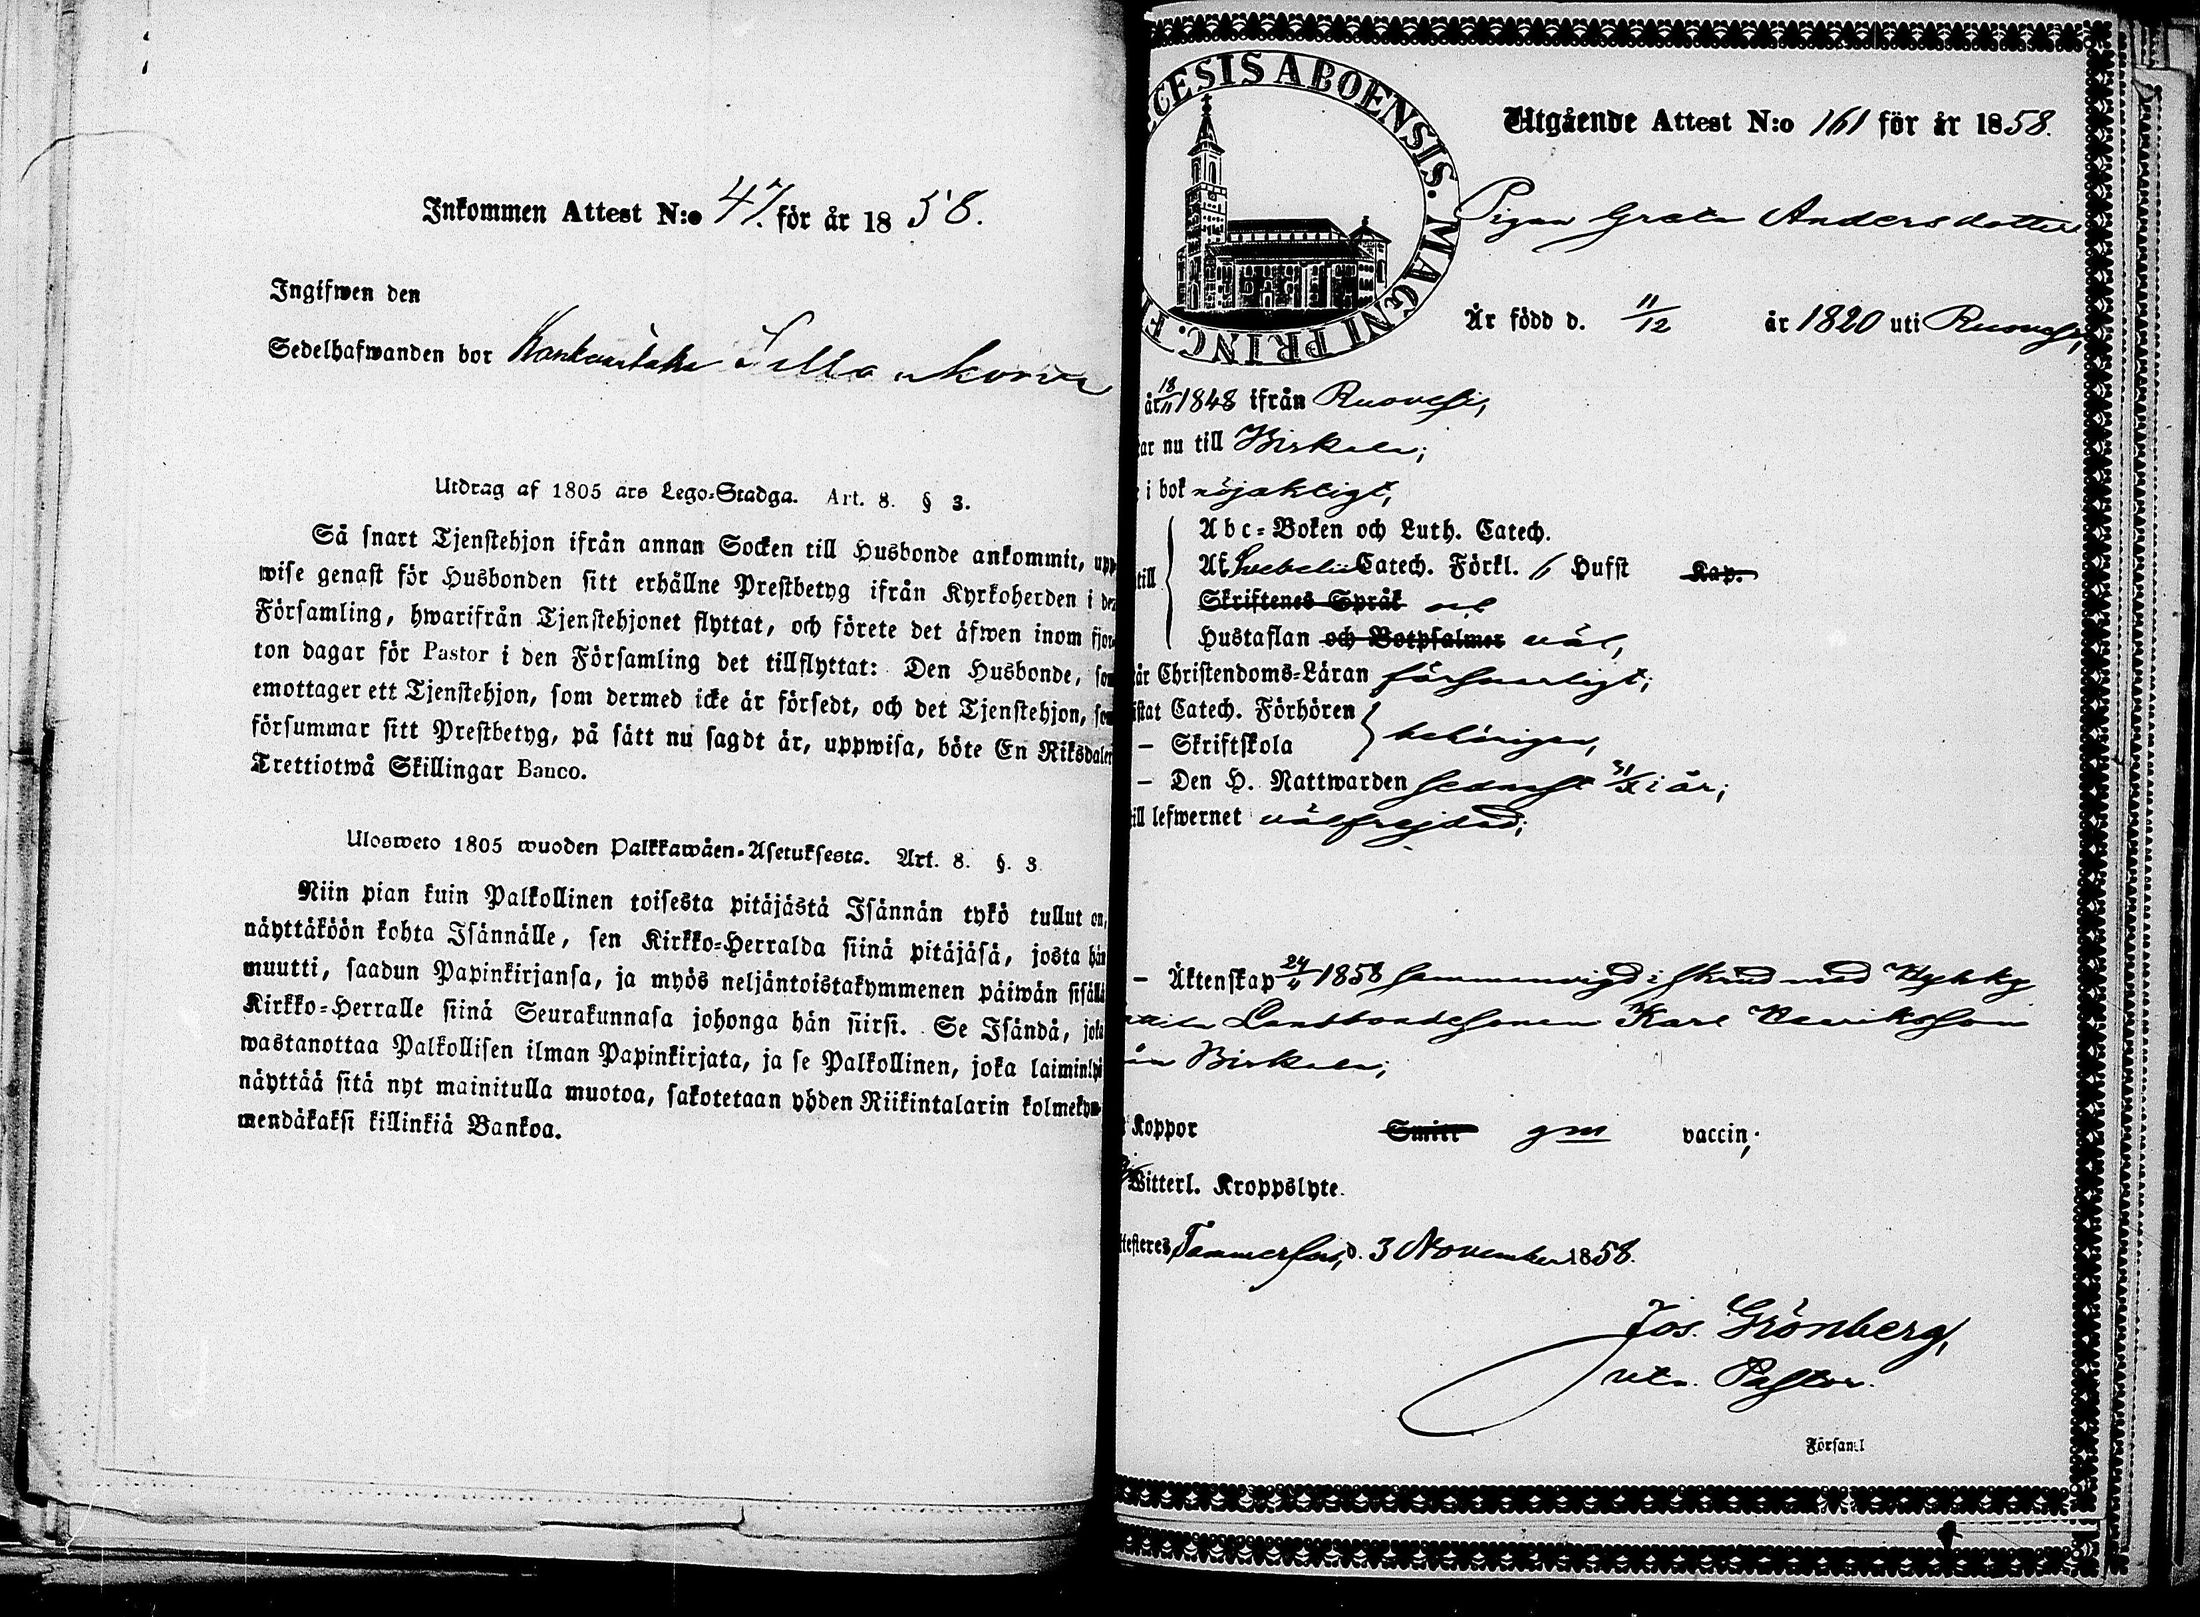 Inkommen Attest N:o 47. för år 1858.
Ingifwen den
Sedelhafwanden bor
Utdrag af 1805 ars Lego-Stadga. Art. 8. § 3.
Så snart Tjenstehjon ifrån annan Socken till Husbonde ankommit, upp-
wise genast för Husbonden sitt erhållne Prestbetyg ifrån Kyrkoherden i den
Församling, hwarifrån Tjenstehjonet flyttat, och förete det äfwen inom fjor-
ton dagar för Pastor i den Församling det tillflyttat: Den Husbonde, som
emottager ett Tjenstehjon, som dermed icke är försedt, och det Tjenstehjon, som
försummar sitt Prestbetyg, på sätt nu sagdt är, uppwisa, böte En Riksdaler
Trettiotwå Skillingar Banco.
Ulosweto 1805 wuoden Palkkawäen-Asetuksesta. Art. 8. §. 3.
Niin pian kuin Palkollinen toisesta pitäjästä Isännän tykö tullut on,
näyttäköön kohta Isännälle, sen Kirkko-Herralda siinä pitäjäsä, josta hän
muutti, saadun Papinkirjansa, ja myös neljäntoistakymmenen päiwän sisällä
Kirkko-Herralle siinä Seurakunnasa johonga hän siirsi. Se Isändä, joka
wastanottaa Palkollisen ilman Papinkirjata, ja se Palkollinen, joka laiminlyö
näyttää sitä nyt mainitulla muotoa, sakotetaan yhden Riikintalarin kolmekym-
mendäkaksi killinkiä Bankoa.
CESIS ABOENSIS. MAGNI PRINC. F
Utgående Attest N:o 161 för år 1858.
Pigan Greta Andersdotter
Är född d. 11/12 år 1820 uti Ruovesi,
år 18/11 1848 ifrån Ruovesi,
ar nu till Birkala;
i bok nöjaktigt,
till
Abc-Boken och Luth. Catech.
Af Svebelii Catech. Förkl. 6 Hufst Kap.
Skriftenes Språk och
Hustaflan och Botpsalmer väl,
är Christendoms-Läran försvarligt;
istat Catech. Förhören
– Skriftskola behörigen,
– Den H. Nattwarden senast 31/X i år;
ill lefwernet välfrejdad;
– Äktenskap 24/4 1858 sammanvigd i Skrud med
Landbondesonen Karl
Birkala;
Koppor Smitt gm vaccin;
Witterl. Kroppslyte.
ttesteres Tammerfors, d. 3 November 1858.
Jos. Grönberg,
vice Pastor.
Församl